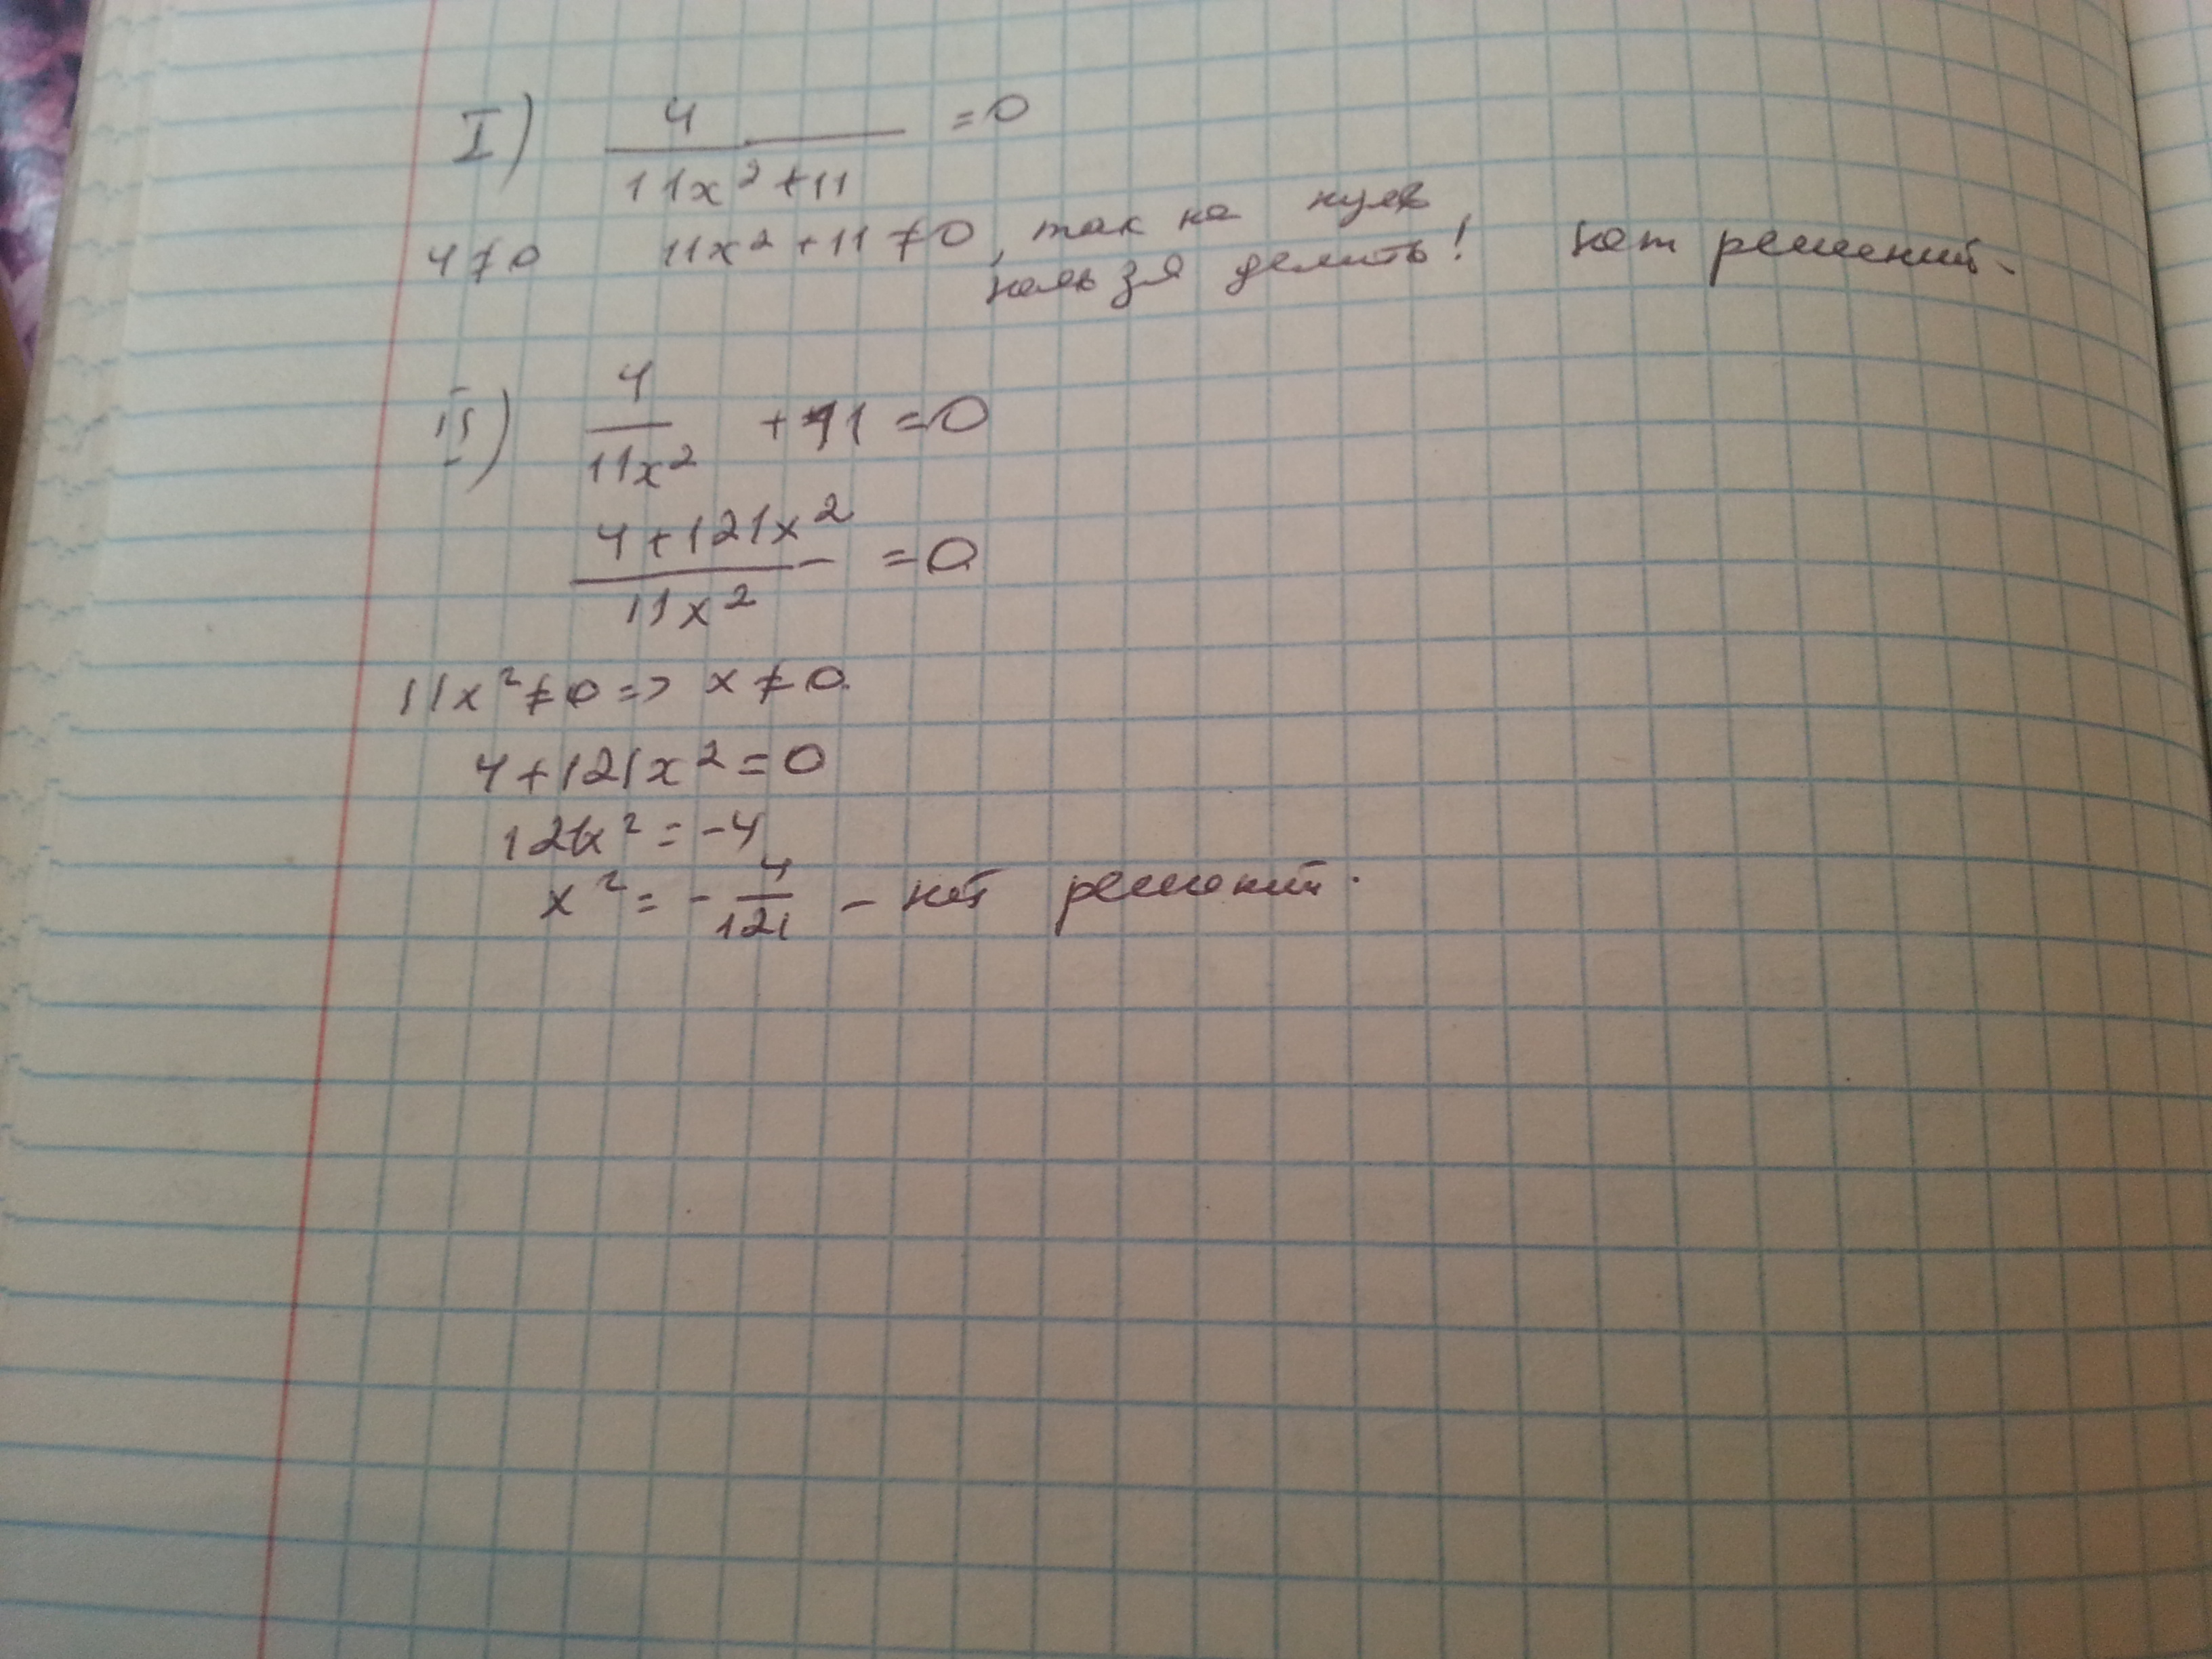 I) 4/(11x²+11) =0
4≠0 11x²+11≠0, так на нуль
нельзя делить! нет решений.
II) 4/(11x²) +11=0
(4+121x²)/(11x²) =0
11x²≠0 => x≠0.
4+121x²=0
121x²=-4
x²= - 4/121 – нет решений.